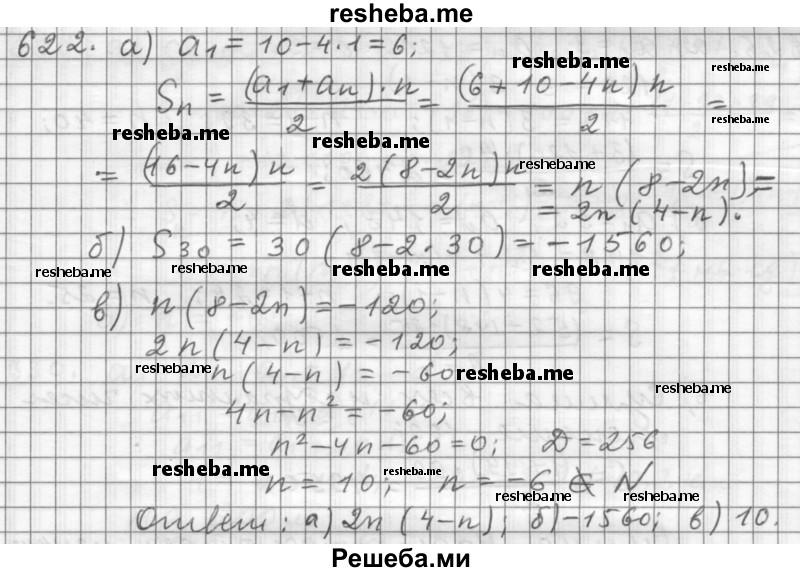 resheba.me
622. а) a₁ = 10 – 4·1 = 6;
resheba.me resheba.me
Sₙ = (a₁ + aₙ)·n / 2 = (6 + 10 – 4n) n / 2 =
resheba.me resheba.me resheba.me
= (16 – 4n) n / 2 = 2 (8 – 2n) n / 2 = n (8 – 2n) =
resheba.me
= 2n (4 – n).
б) S₃₀ = 30 (8 – 2·30) = –1560;
resheba.me resheba.me resheba.me resheba.me
в) n (8 – 2n) = –120;
2n (4 – n) = –120;
resheba.me n (4 – n) = –60 resheba.me
resheba.me
4n – n² = –60;
n² – 4n – 60 = 0; D = 256
resheba.me resheba.me
n = 10; n = –6 ∉ N
resheba.me resheba.me
Ответ: а) 2n (4 – n); б) –1560; в) 10.
Решеба.ми